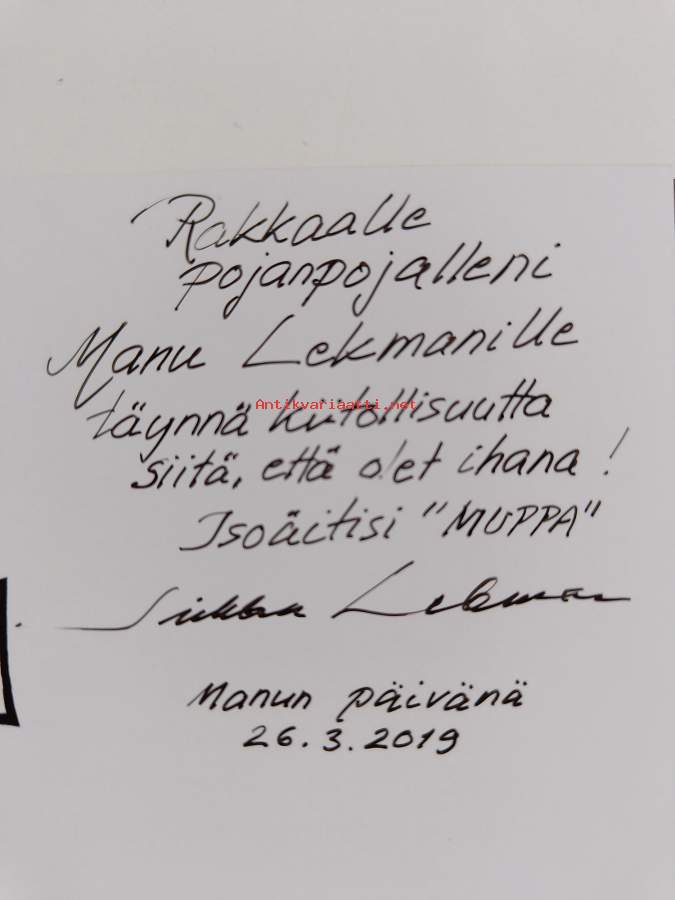 Rakkaalle
pojanpojalleni
Manu Lekmanille
Antikvariaatti.net
täynnä kiitollisuutta
siitä, että olet ihana!
Isoäitisi "MUPPA"
Sirkka Lekman
Manun päivänä
26.3.2019